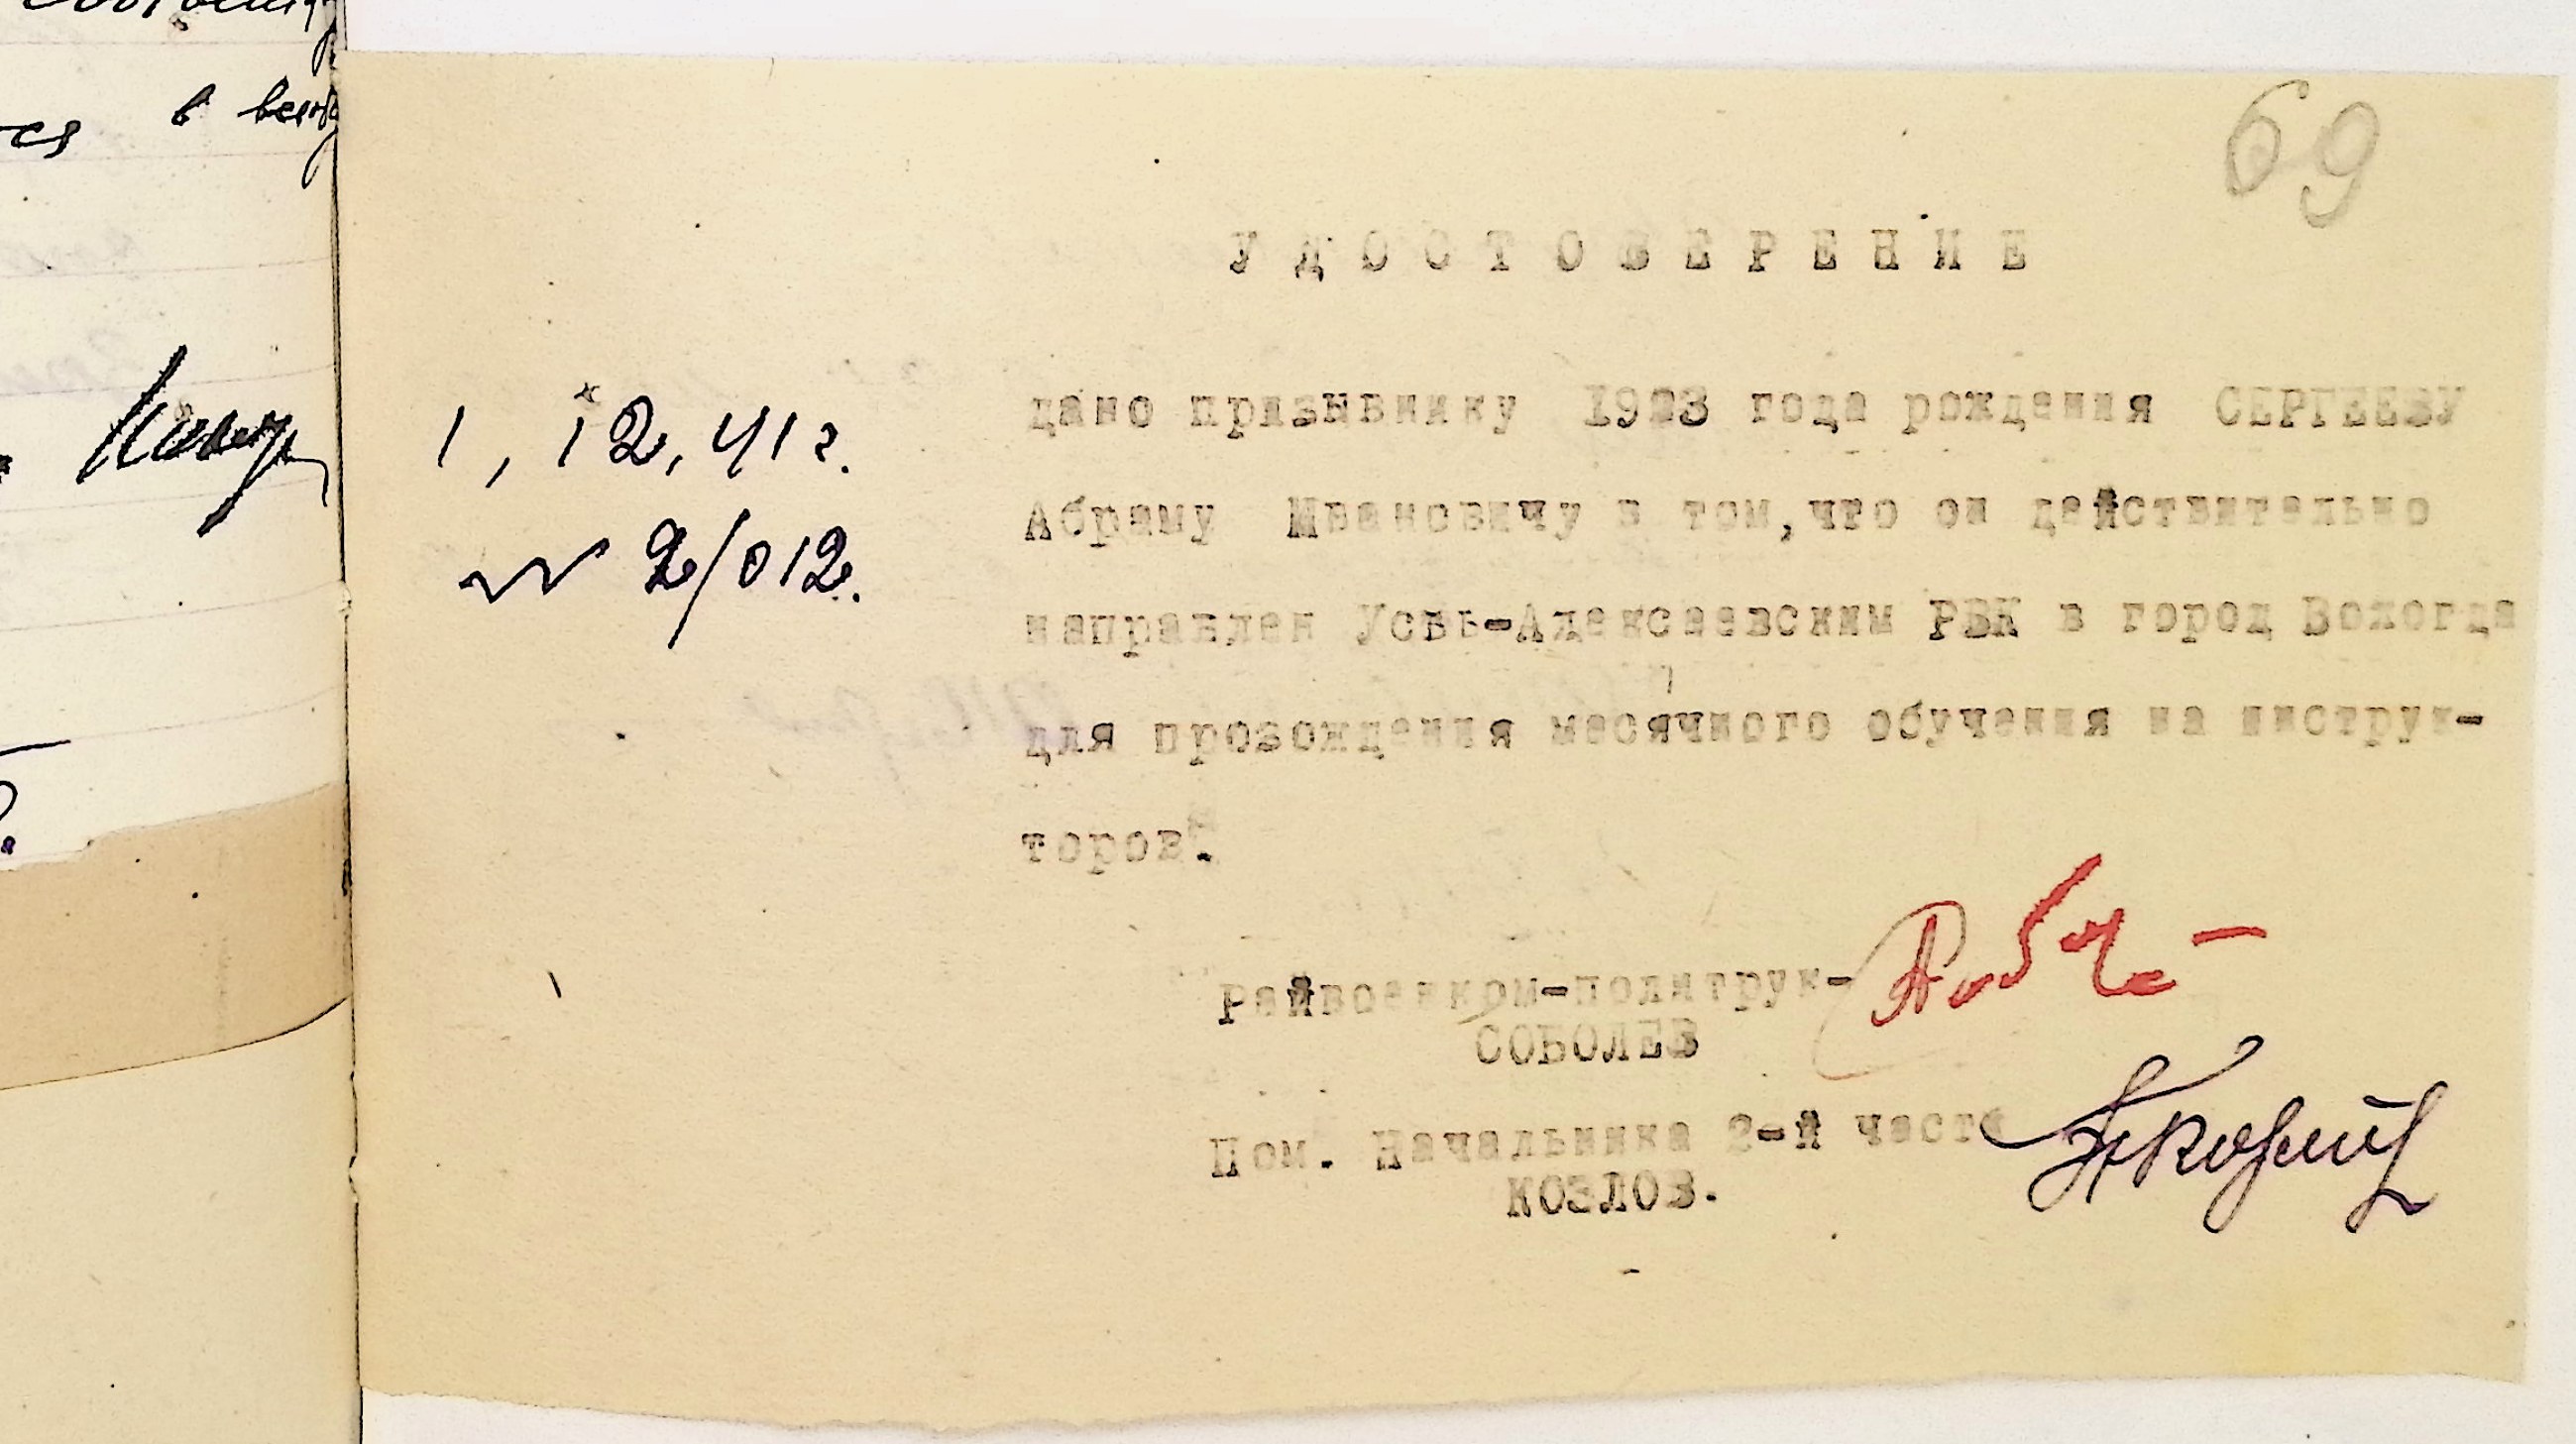 в
ся
69
УДОСТОВЕРЕНИЕ
1, 12, 41 г.
N 2/012.
дано призывнику 1923 года рождения СЕРГЕЕВУ
Абраму Ивановичу в том, что он действительно
направлен Усть-Алексеевским РВК в город Вологда
для прозождения месячного обучения на инструк-
торов.
Райвоенком-политрук-
СОБОЛЕВ
Пом. Начальника 2-й части
КОЗЛОВ.